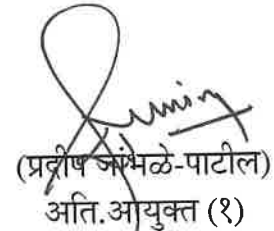 (प्रदीप जांभळे-पाटील)
अति.आयुक्त (१)